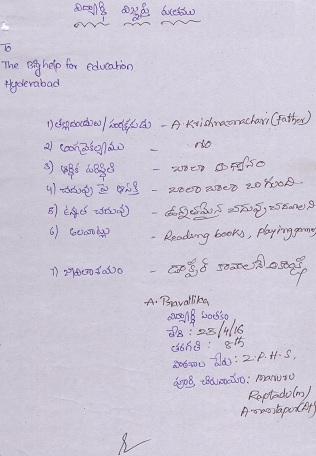 విద్యార్థి విజ్ఞప్తి పత్రము
To
The Big help for Education
Hyderabad
1) తల్లిదండ్రులు/సంరక్షకుడు - A. Krishnamachari (Father)
2) అంగవైకల్యము - no
3) ఆర్థిక పరిస్థితి - చాలా
4) చదువు పై ఆసక్తి - చాలా చాలా బాగుంది
5) ఉన్నత చదువు - ఉన్నతమైన చదువు చదవాలని
6) అలవాట్లు - Reading books, playing games
7) జీవితాశయం - డాక్టర్ కావాలని
A. Pravallika
విద్యార్థి సంతకం
తేది : 23/4/16
తరగతి : 8th
పాఠశాల పేరు : Z.P.H.S,
పూర్తి చిరునామా : maruru
Raptadu(m)
Anantapur(Dt)